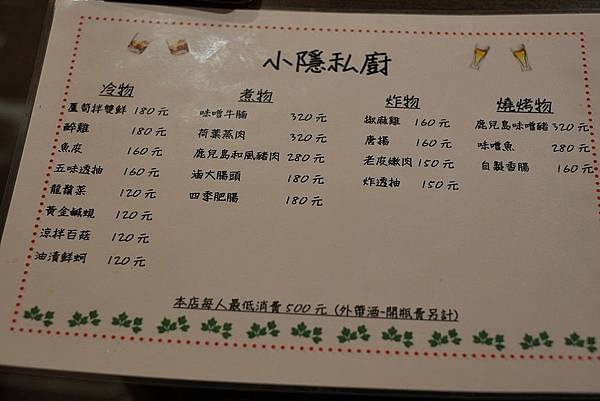 小隱私廚
冷物
蘆筍拌雙鮮 180元
醉雞 180元
魚皮 160元
五味透抽 160元
龍鬚菜 120元
黃金鹹蜆 120元
涼拌百菇 120元
油漬鮮蚵 120元
煮物
味噌牛腩 320元
荷葉蒸肉 320元
鹿兒島和風豬肉 280元
滷大腸頭 180元
四季肥腸 180元
炸物
椒麻雞 160元
唐揚 160元
老皮嫩肉 150元
炸透抽 150元
燒烤物
鹿兒島味噌豬 320元
味噌魚 280元
自製香腸 160元
本店每人最低消費500元(外帶酒~開瓶費另計)